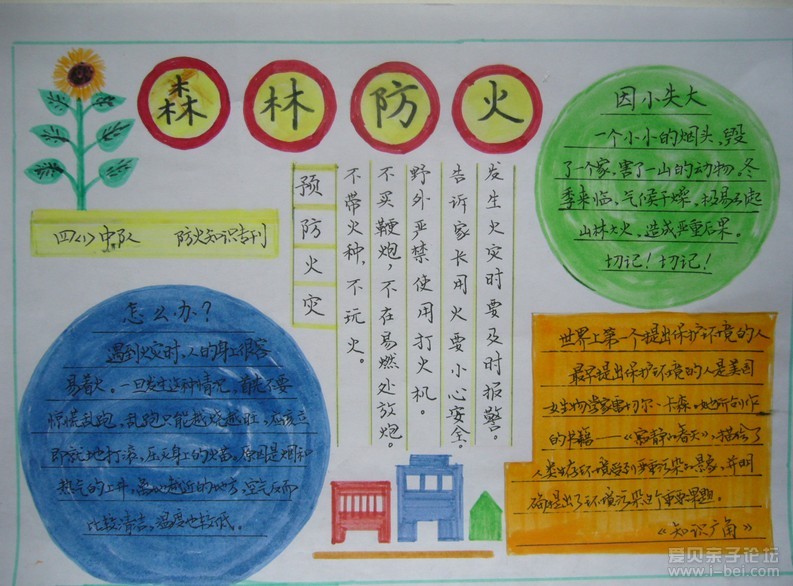 森林防火
四(1)中队 防火知识专刊
预防火灾
不带火种，不玩火。
不买鞭炮，不在易燃处放炮。
野外严禁使用打火机。
告诉家长用火要小心安全。
发生火灾时要及时报警。
因小失大
一个小小的烟头，毁
了一个家，害了一山的动物，冬
季来临，气候干燥，极易引起
山林大火，造成严重后果。
切记！切记！
怎么办？
遇到火灾时，人的身上很容
易着火。一旦发生这种情况，首先不要
惊慌乱跑，乱跑只能越烧越旺，应该立
即就地打滚，压灭身上的火苗，原因是烟和
热气的上升，离地越近的地方，空气反而
比较清洁，温度也较低。
世界上第一个提出保护环境的人
最早提出保护环境的人是美国
女生物学家雷切尔·卡森。她所创作
的书籍——《寂静的春天》，描绘了
人类生存环境受到严重污染的景象，并明
确提出了环境污染这个重要课题。
《知识广角》
爱贝亲子论坛
www.i-bei.com